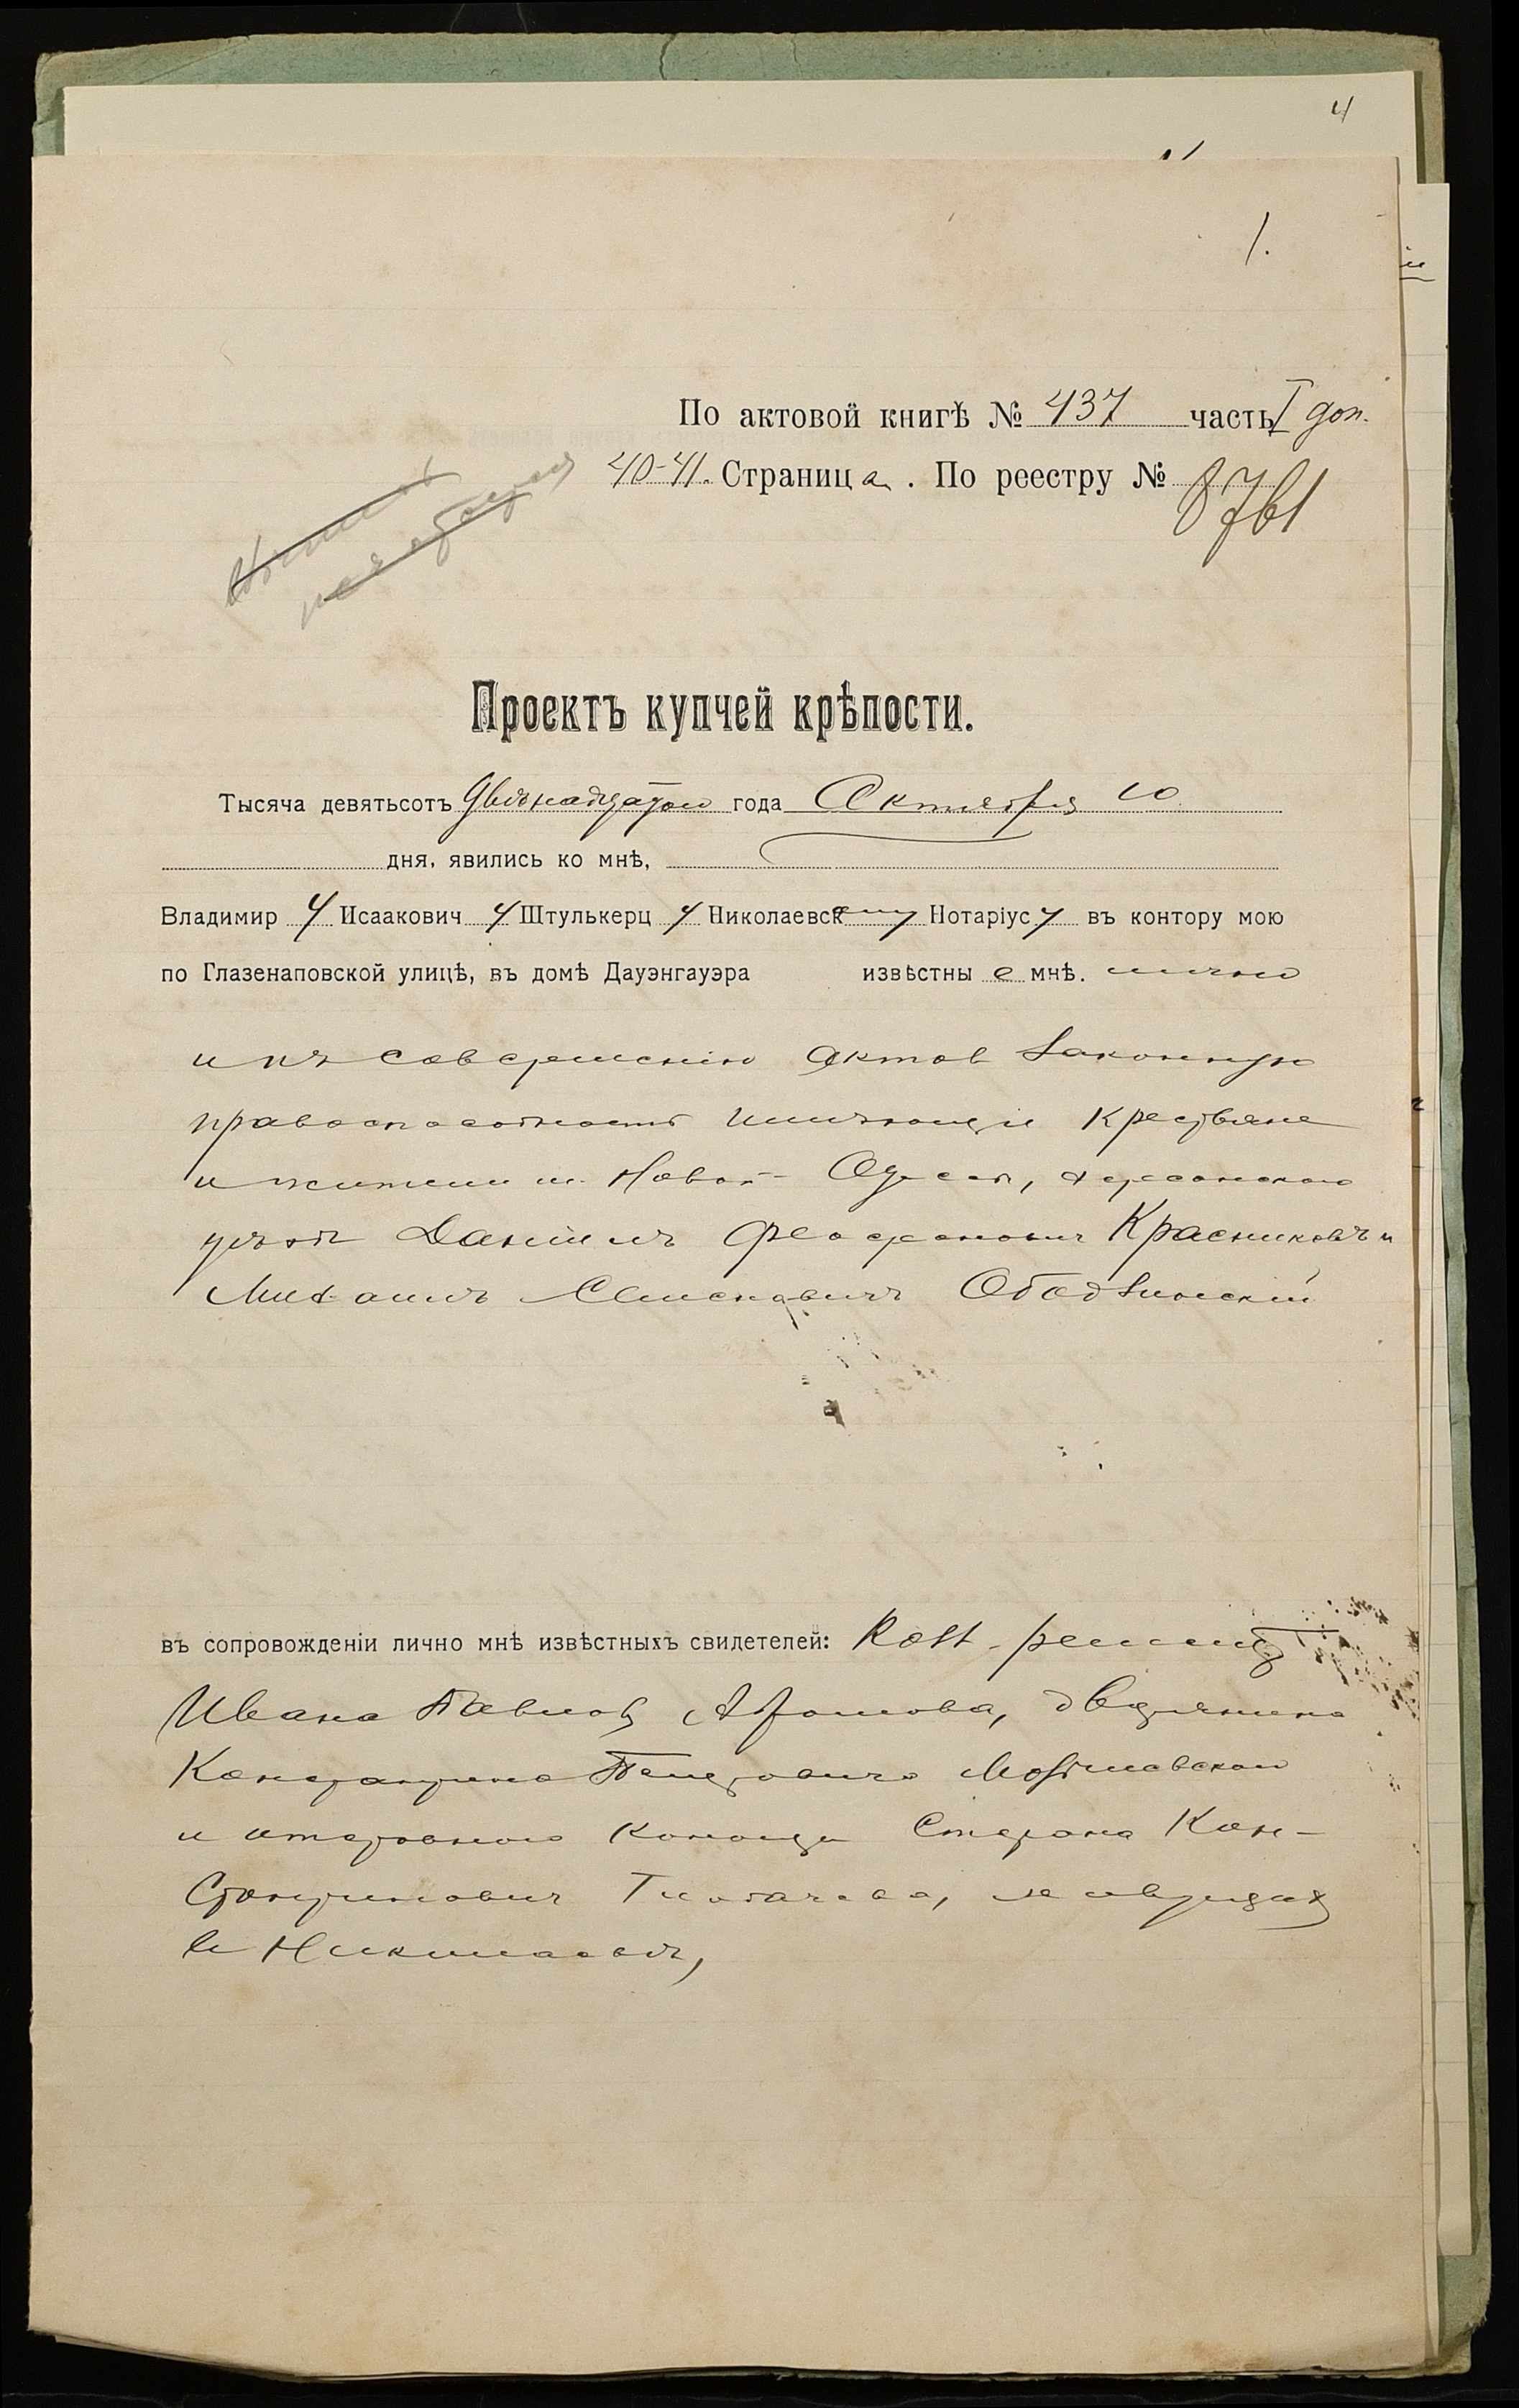 4
1.
По актовой книгѣ № 437 часть I доп.
40-41. Страница. По реестру № 8761
Проектъ купчей крѣпости.
Тысяча девятьсотъ двѣнадцатого года Октября 10
дня, явились ко мнѣ,
Владимиру Исааковичу Штулькерцу Николаевскому Нотаріусу въ контору мою
по Глазенаповской улицѣ, въ домѣ Дауэнгауэра извѣстные мнѣ. лично
и къ совершенію актов законную
правоспособность имѣющіе крестьяне
и жители м. Новой Одессы, Херсонского
уѣзда Даніилъ Красниковъ и
Михаилъ Ободзинскій
въ сопровожденіи лично мнѣ извѣстныхъ свидетелей:
Ивана Павлов дворянина
Константина Петровича
и Степана Кон-
стантинович живущих
в Николаевѣ,